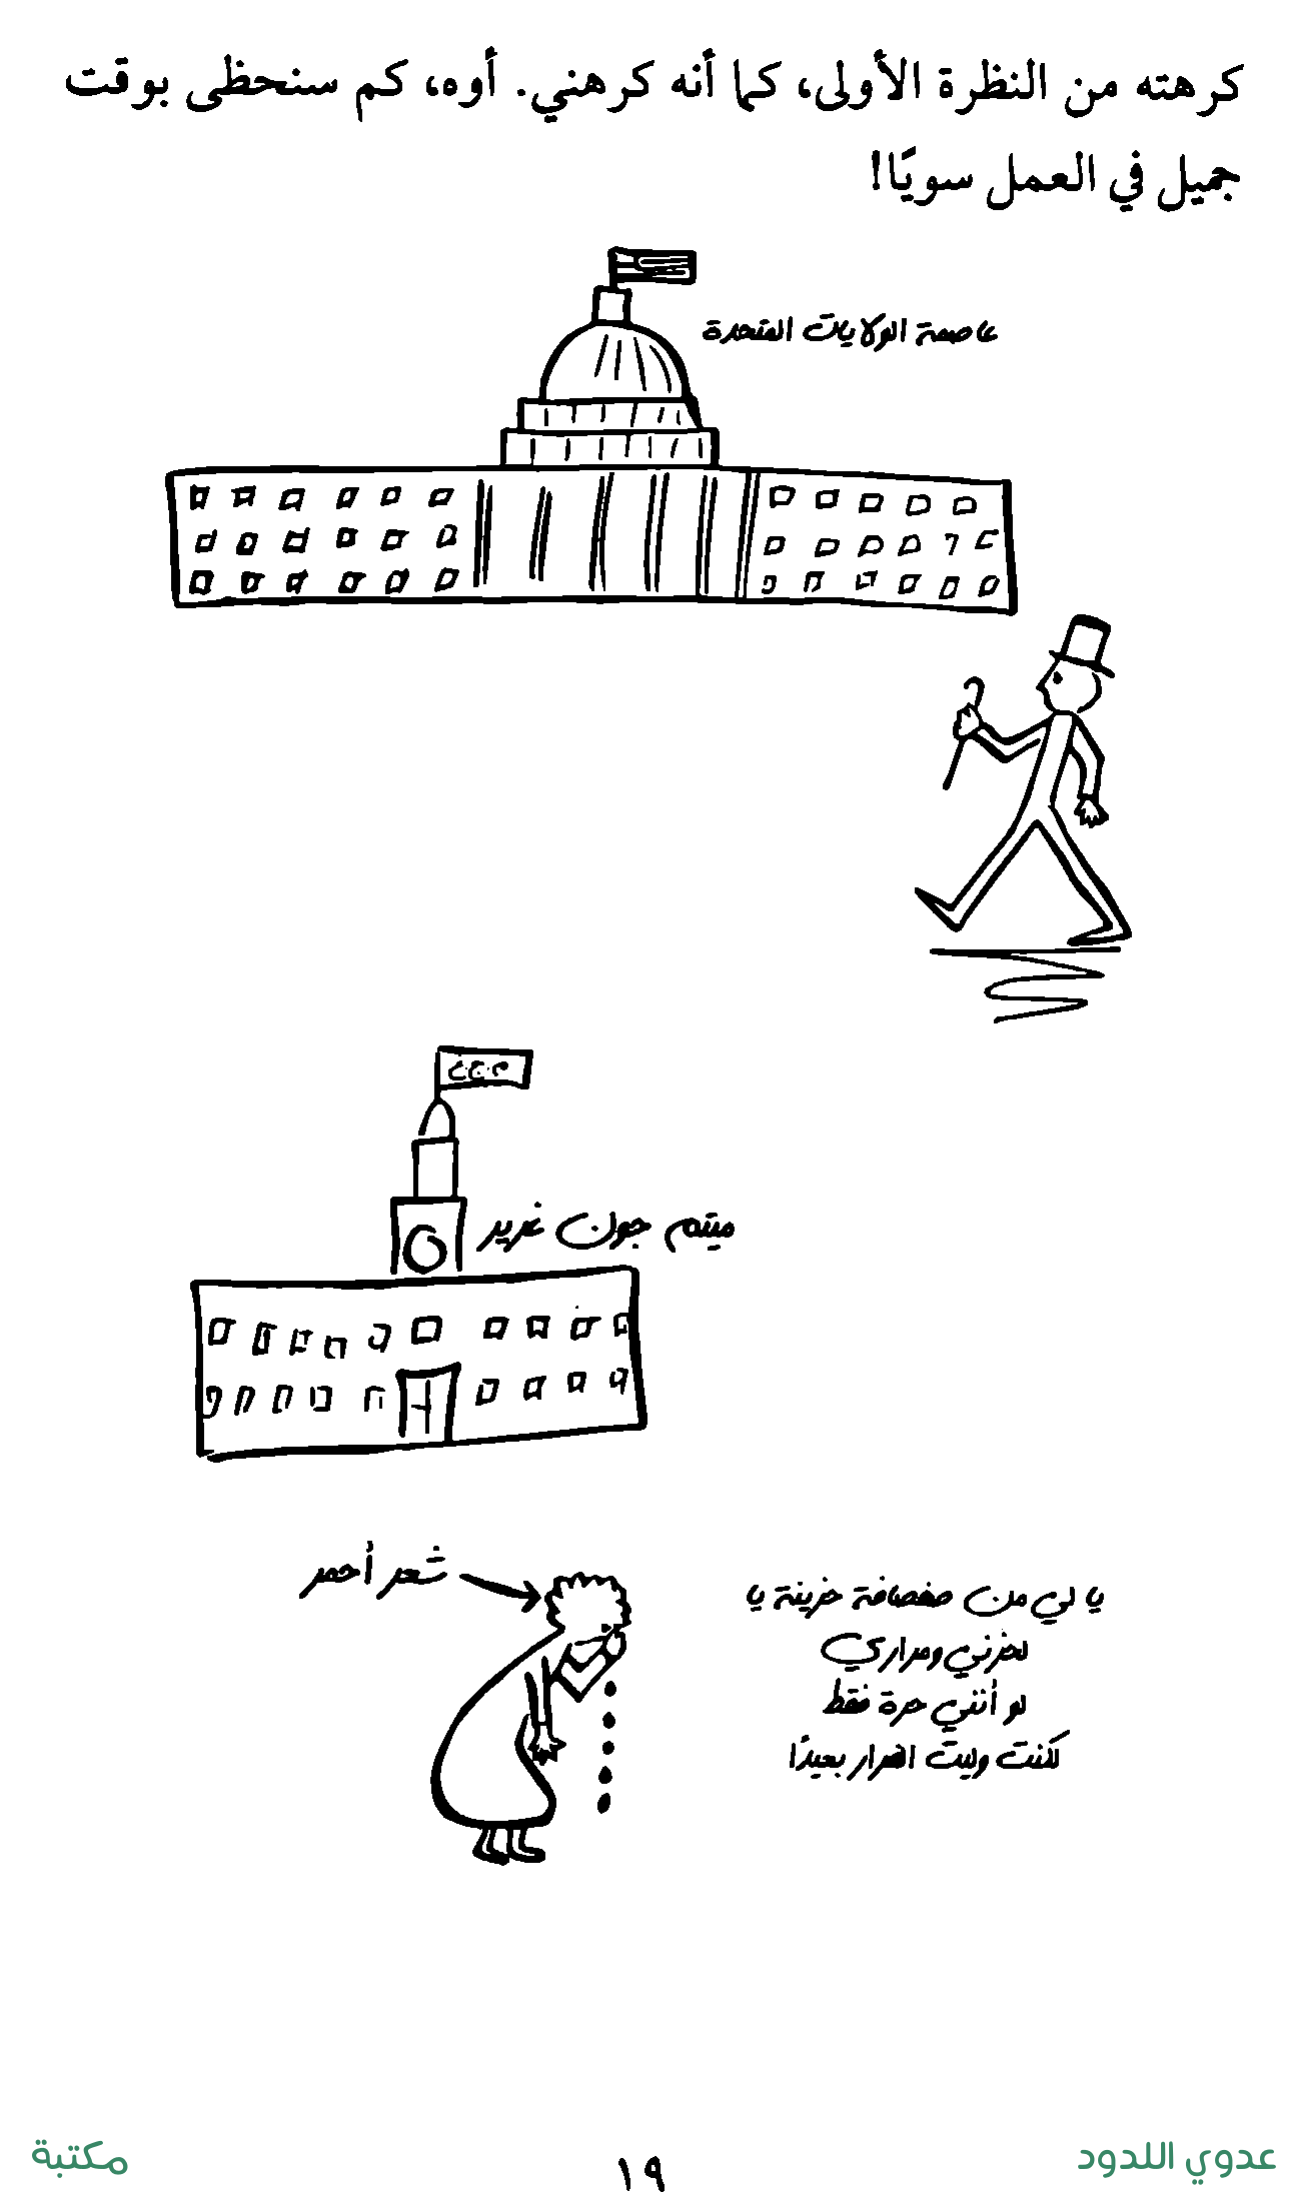 كرهته من النظرة الأولى، كما أنه كرهني. أوه، كم سنحظى بوقت
جميل في العمل سويًا!
عاصمة الولايات المتحدة
م.ج.غ
ميتم جون غرير
شعر أحمر
يا لي من صفصافة حزينة يا
لحزني ومراري
لو أنني حرة فقط
لكنت وليت الفرار بعيدًا
١٩
عدوي اللدود
مكتبة